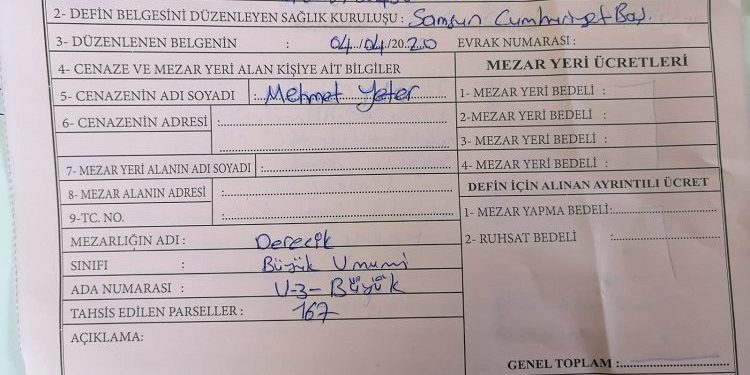 2- DEFİN BELGESİNİ DÜZENLEYEN SAĞLIK KURULUŞU : Samsun Cumhuriyet Baş.
3- DÜZENLENEN BELGENİN : 04/04/2020 EVRAK NUMARASI :
4- CENAZE VE MEZAR YERİ ALAN KİŞİYE AİT BİLGİLER
MEZAR YERİ ÜCRETLERİ
5- CENAZENİN ADI SOYADI : Mehmet Yeter
1- MEZAR YERİ BEDELİ :
6- CENAZENİN ADRESİ :
2-MEZAR YERİ BEDELİ :
3- MEZAR YERİ BEDELİ :
7- MEZAR YERİ ALANIN ADI SOYADI :
4- MEZAR YERİ BEDELİ :
8- MEZAR ALANIN ADRESİ :
DEFİN İÇİN ALINAN AYRINTILI ÜCRET
9-TC. NO. :
1- MEZAR YAPMA BEDELİ:
MEZARLIĞIN ADI : Derecik
2- RUHSAT BEDELİ :
SINIFI : Büyük Umumi
ADA NUMARASI : U-3-Büyük
TAHSİS EDİLEN PARSELLER : 167
AÇIKLAMA:
GENEL TOPLAM :